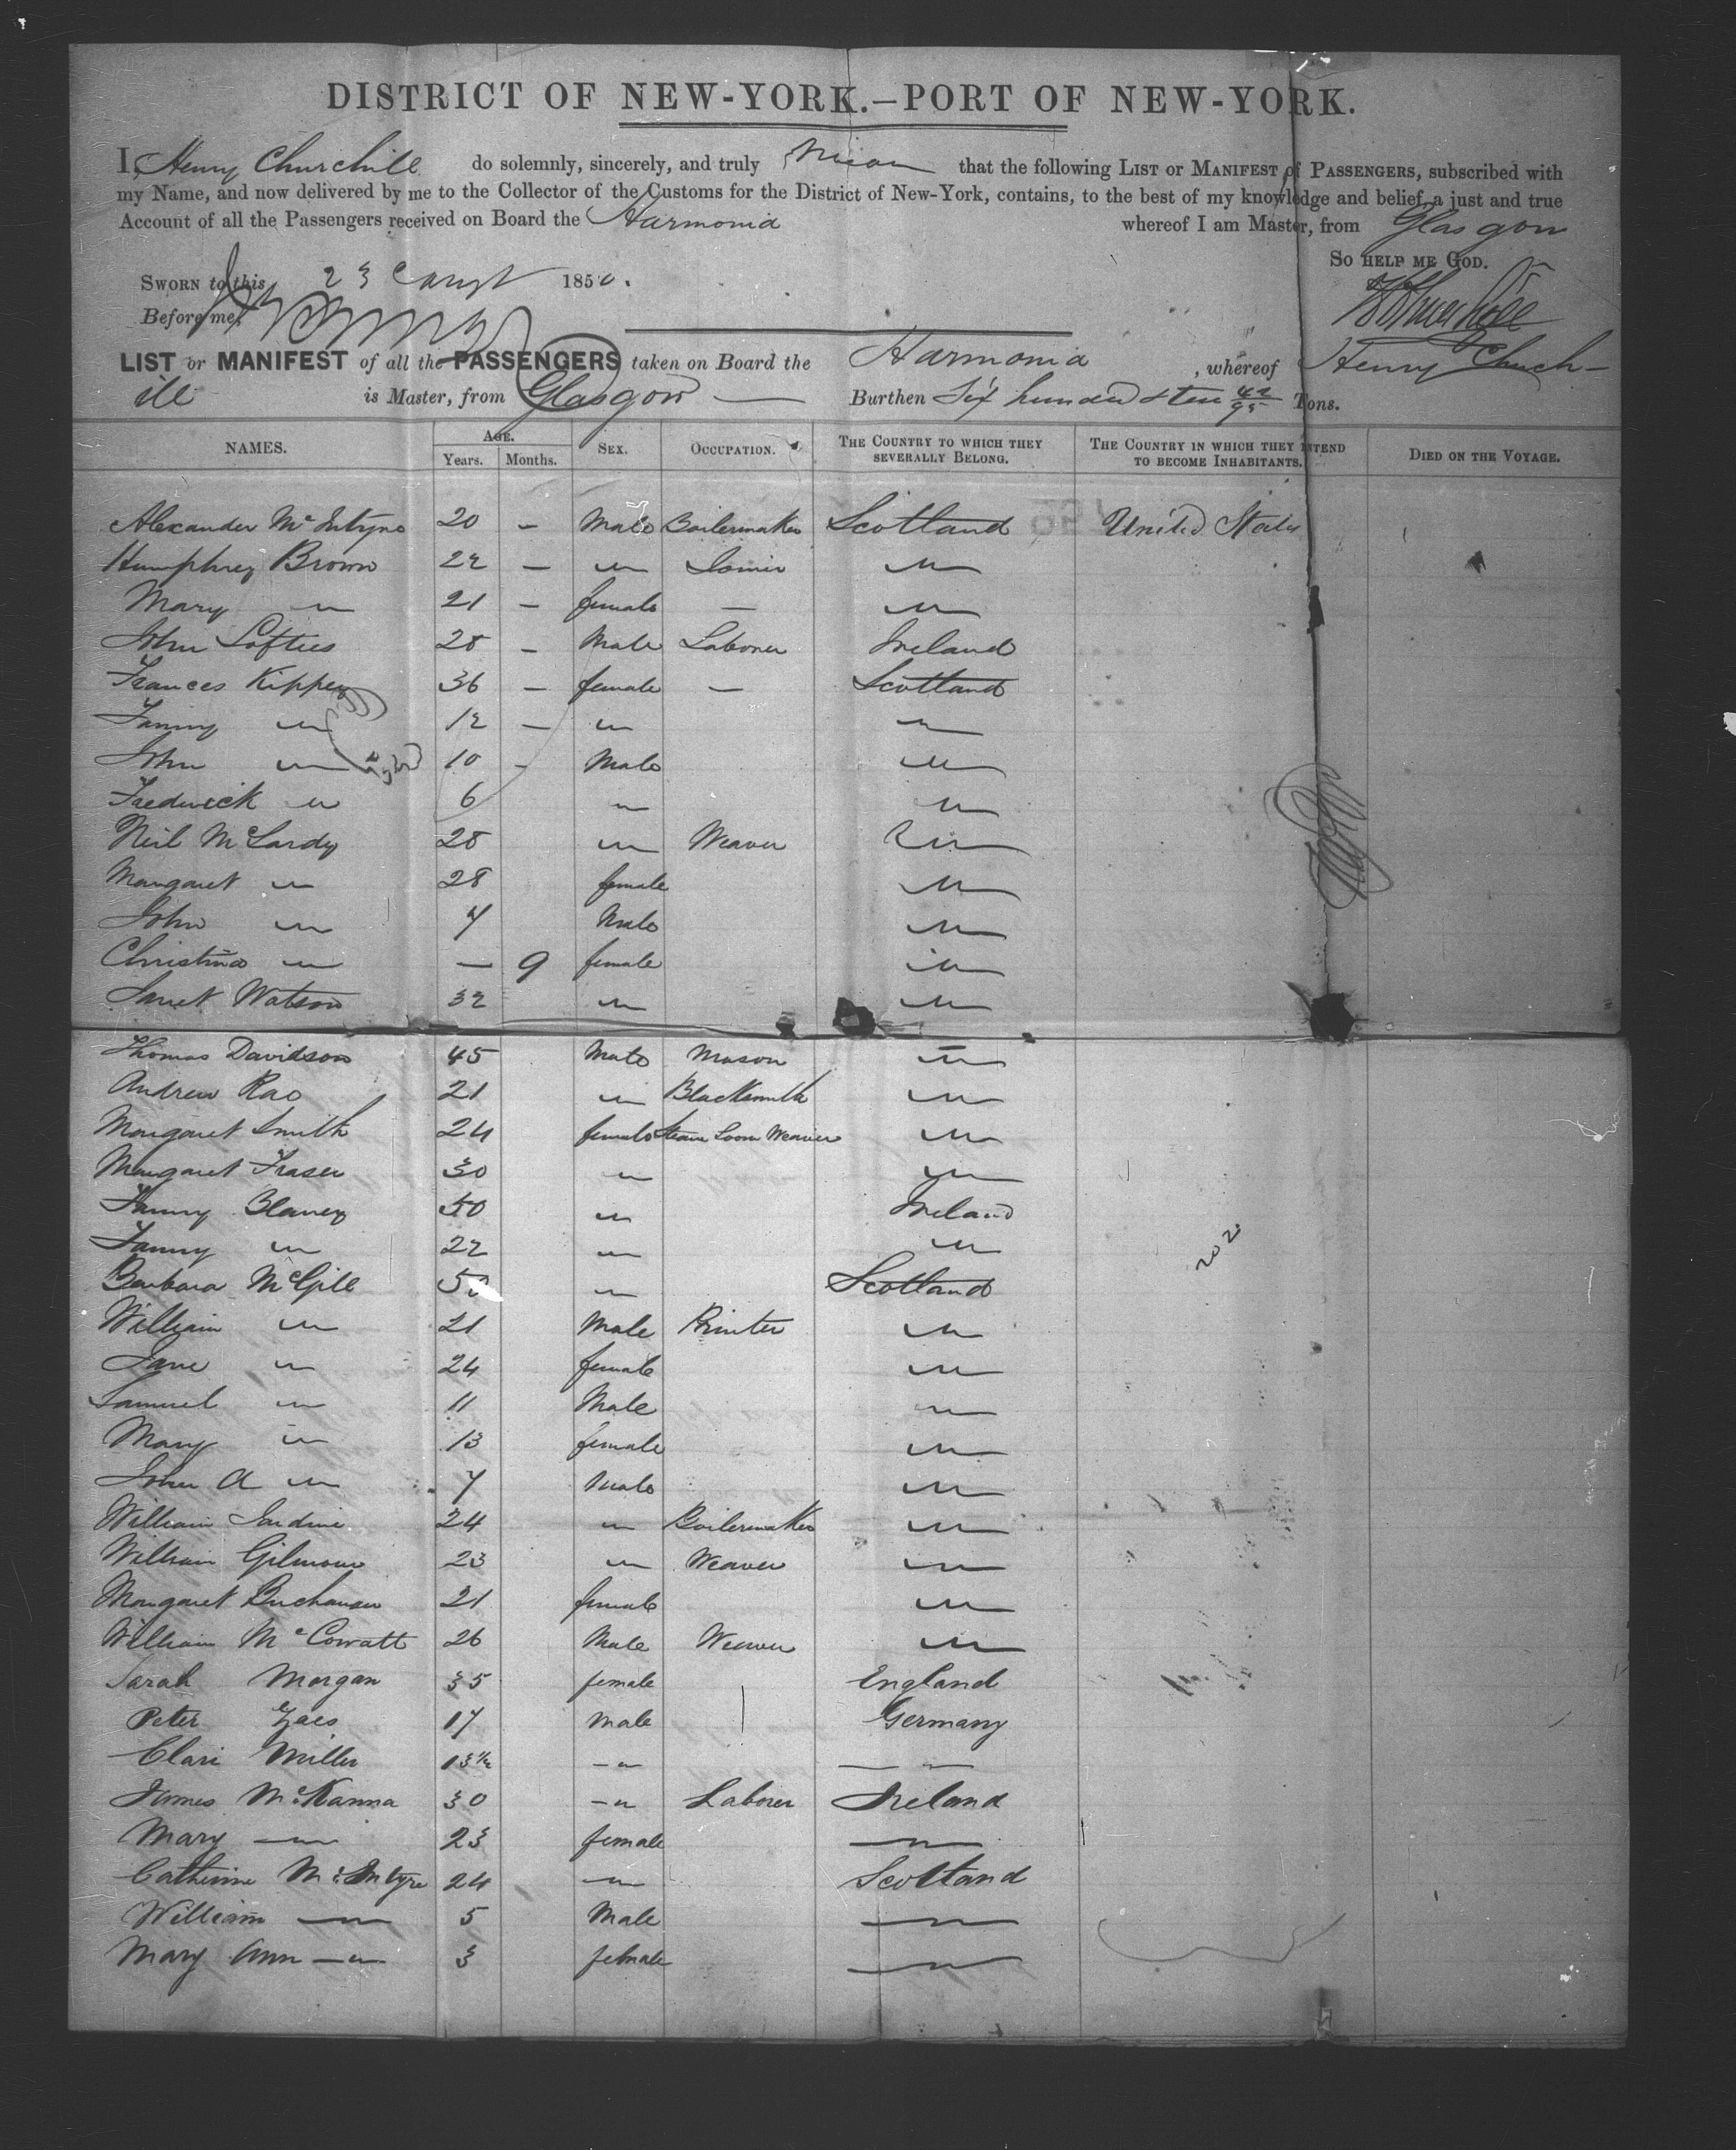 DISTRICT OF NEW-YORK.—PORT OF NEW-YORK.
I, Henry Churchill do solemnly, sincerely, and truly swear that the following LIST OR MANIFEST of PASSENGERS, subscribed with
my Name, and now delivered by me to the Collector of the Customs for the District of New-York, contains, to the best of my knowledge and belief, a just and true
Account of all the Passengers received on Board the Harmonia whereof I am Master, from Glasgow
SO HELP ME GOD.
SWORN to this 23 August 1850.
Before me,
LIST or MANIFEST of all the PASSENGERS taken on Board the Harmonia, whereof Henry Church-
ill is Master, from Glasgow — Burthen Six hundred & ten 42/95 Tons.
NAMES. AGE. SEX. OCCUPATION. THE COUNTRY TO WHICH THEY SEVERALLY BELONG. THE COUNTRY IN WHICH THEY INTEND TO BECOME INHABITANTS. DIED ON THE VOYAGE.
Years. Months.
Alexander McIntyre 20 - Male Boilermaker Scotland United States
Humphrey Brown 22 — " Joiner "
Mary " 21 - female — "
John Lofties 28 - Male Laborer Ireland
Frances Kippey 36 — female — Scotland
Fanny " 12 — " "
John " 10 - Male "
Frederick " 6 " "
Neil McLardy 28 " Weaver "
Margaret " 28 female "
John " 4 Male "
Christina " — 9 female "
Janet Watson 32 " "
Thomas Davidson 45 Male Mason "
Andrew Rae 21 " Blacksmith "
Margaret Smith 24 female Steam Loom Weaver "
Margaret Fraser 30 " "
Fanny Blaney 50 " Ireland
Fanny " 22 " "
Barbara McGill 50 " Scotland
William " 21 Male Printer "
Jane " 24 female "
Samuel " 11 Male "
Mary " 13 female "
John A " 7 Male "
William Jardine 24 " Boilermaker "
William Gilmour 23 " Weaver "
Margaret Buchanan 21 female "
William McCowatt 26 Male Weaver "
Sarah Morgan 35 female England
Peter 17 male Germany
Clari Miller 13½ " "
James McKanna 30 " Laborer Ireland
Mary " 23 female "
Catherine McIntyre 24 " Scotland
William " 5 Male "
Mary Ann " 3 female "
202